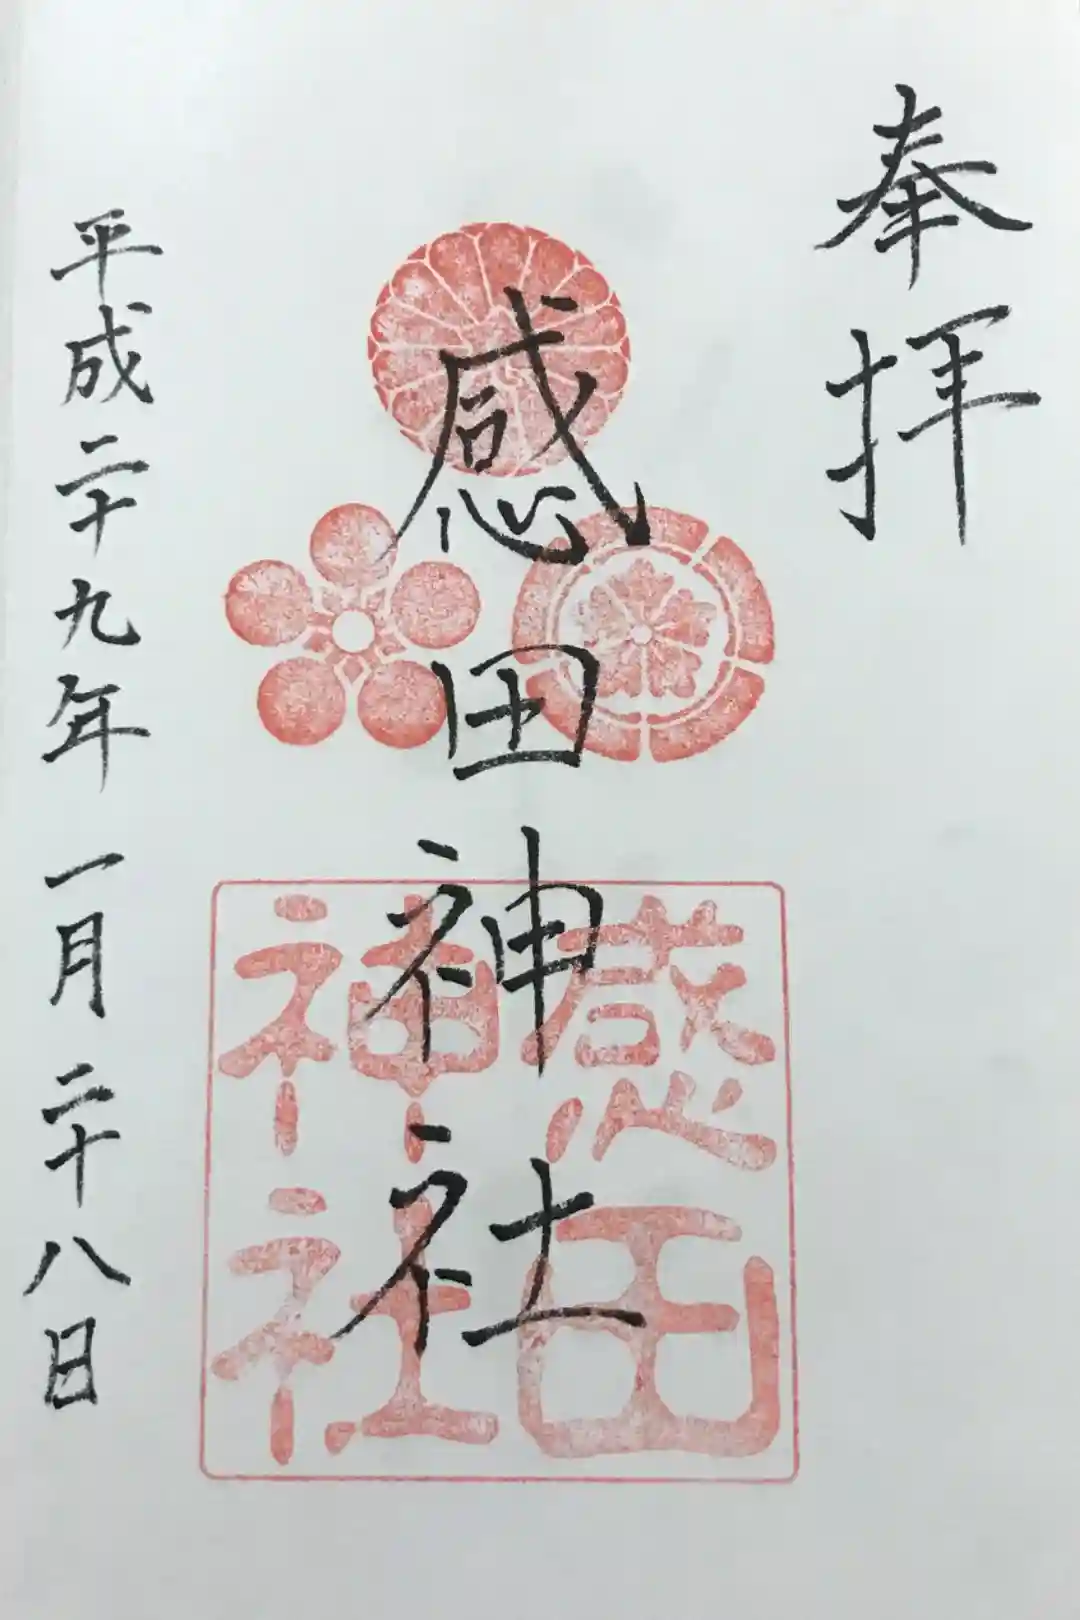 奉拝
感田神社
感田神社
平成二十九年一月二十八日